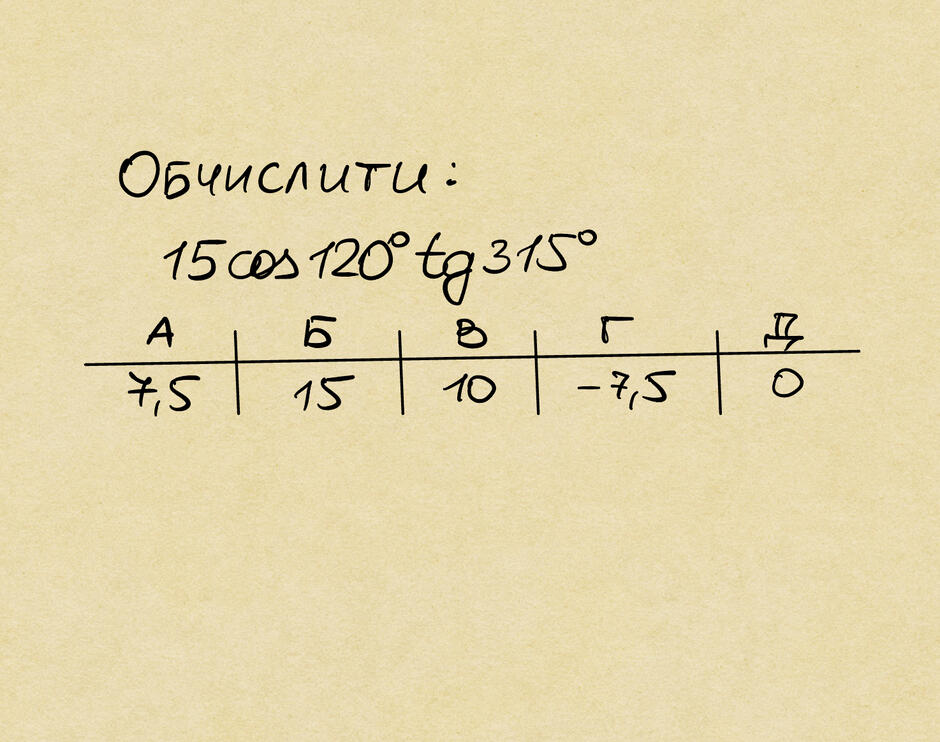 Обчислити:
15cos120° tg315°
А Б В Г Д
7,5 15 10 -7,5 0